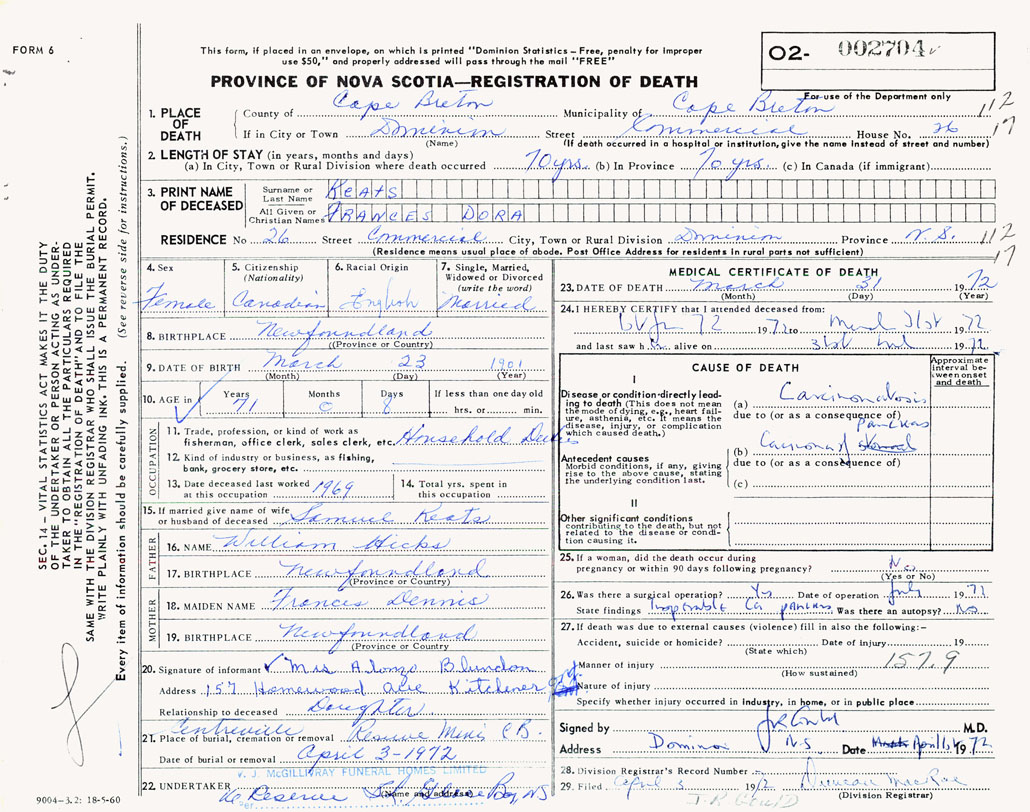 FORM 6
This form, if placed in an envelope, on which is printed "Dominion Statistics – Free, penalty for improper
use $50," and properly addressed will pass through the mail "FREE"
O2- 002704
For use of the Department only
PROVINCE OF NOVA SCOTIA—REGISTRATION OF DEATH
1. PLACE OF DEATH
County of Cape Breton Municipality of Cape Breton 112
If in City or Town Dominion Street Commercial House No. 26 17
(Name) (If death occurred in a hospital or institution, give the name instead of street and number)
2. LENGTH OF STAY (in years, months and days)
(a) In City, Town or Rural Division where death occurred 70 yrs. (b) In Province 70 yrs. (c) In Canada (if immigrant)
3. PRINT NAME OF DECEASED
Surname or Last Name KEATS
All Given or Christian Names FRANCES DORA
RESIDENCE No 26 Street Commercial City, Town or Rural Division Dominion Province N.S. 112
(Residence means usual place of abode. Post Office Address for residents in rural parts not sufficient) 17
4. Sex Female
5. Citizenship (Nationality) Canadian
6. Racial Origin English
7. Single, Married, Widowed or Divorced (write the word) Married
8. BIRTHPLACE Newfoundland
(Province or Country)
9. DATE OF BIRTH March 23 1901
(Month) (Day) (Year)
10. AGE in Years 71 Months 0 Days 8 If less than one day old hrs. or min.
OCCUPATION
11. Trade, profession, or kind of work as
fisherman, office clerk, sales clerk, etc. Household Duties
12. Kind of industry or business, as fishing,
bank, grocery store, etc.
13. Date deceased last worked at this occupation 1969
14. Total yrs. spent in this occupation
15. If married give name of wife or husband of deceased Samuel Keats
FATHER
16. NAME William Hicks
17. BIRTHPLACE Newfoundland
(Province or Country)
MOTHER
18. MAIDEN NAME Frances Dennis
19. BIRTHPLACE Newfoundland
(Province or Country)
20. Signature of informant Mrs Alonzo Blundon
Address 157 Homewood ave Kitchener
Relationship to deceased Daughter
21. Place of burial, cremation or removal Centreville Reserve Mines CB.
Date of burial or removal April 3-1972
V. J. McGILLIVRAY FUNERAL HOMES LIMITED
22. UNDERTAKER Reserve St. Glace Bay, NS
(Name and address)
MEDICAL CERTIFICATE OF DEATH
23. DATE OF DEATH March 31 1972
(Month) (Day) (Year)
24. I HEREBY CERTIFY that I attended deceased from:
72 1972 to March 31st 1972
and last saw h alive on 31st 1972
CAUSE OF DEATH
Approximate interval between onset and death
I
Disease or condition directly leading to death (This does not mean the mode of dying, e.g., heart failure, asthenia, etc. It means the disease, injury, or complication which caused death.)
(a) Carcinomatosis
due to (or as a consequence of)
pancreas
Antecedent causes
Morbid conditions, if any, giving rise to the above cause, stating the underlying condition last.
(b) Carcinoma of stomach
due to (or as a consequence of)
(c)
II
Other significant conditions contributing to the death, but not related to the disease or condition causing it.
25. If a woman, did the death occur during
pregnancy or within 90 days following pregnancy? No
(Yes or No)
26. Was there a surgical operation? Yes Date of operation July 1971
State findings Inoperable Ca pancreas Was there an autopsy? No
27. If death was due to external causes (violence) fill in also the following:–
Accident, suicide or homicide? Date of injury 19
(State which)
Manner of injury 157.9
(How sustained)
Nature of injury
Specify whether injury occurred in industry, in home, or in public place
Signed by M.D.
Address Dominion NS Date April 1972
28. Division Registrar's Record Number
29. Filed April 3 1972 Duncan MacRae
(Division Registrar)
J R GOULD
SEC. 14 – VITAL STATISTICS ACT MAKES IT THE DUTY
OF THE UNDERTAKER OR PERSON ACTING AS UNDER-
TAKER TO OBTAIN ALL THE PARTICULARS REQUIRED
IN THE "REGISTRATION OF DEATH" AND TO FILE THE
SAME WITH THE DIVISION REGISTRAR WHO SHALL ISSUE THE BURIAL PERMIT.
WRITE PLAINLY WITH UNFADING INK. THIS IS A PERMANENT RECORD.
Every item of information should be carefully supplied. (See reverse side for instructions.)
9004–3.2: 18-5-60